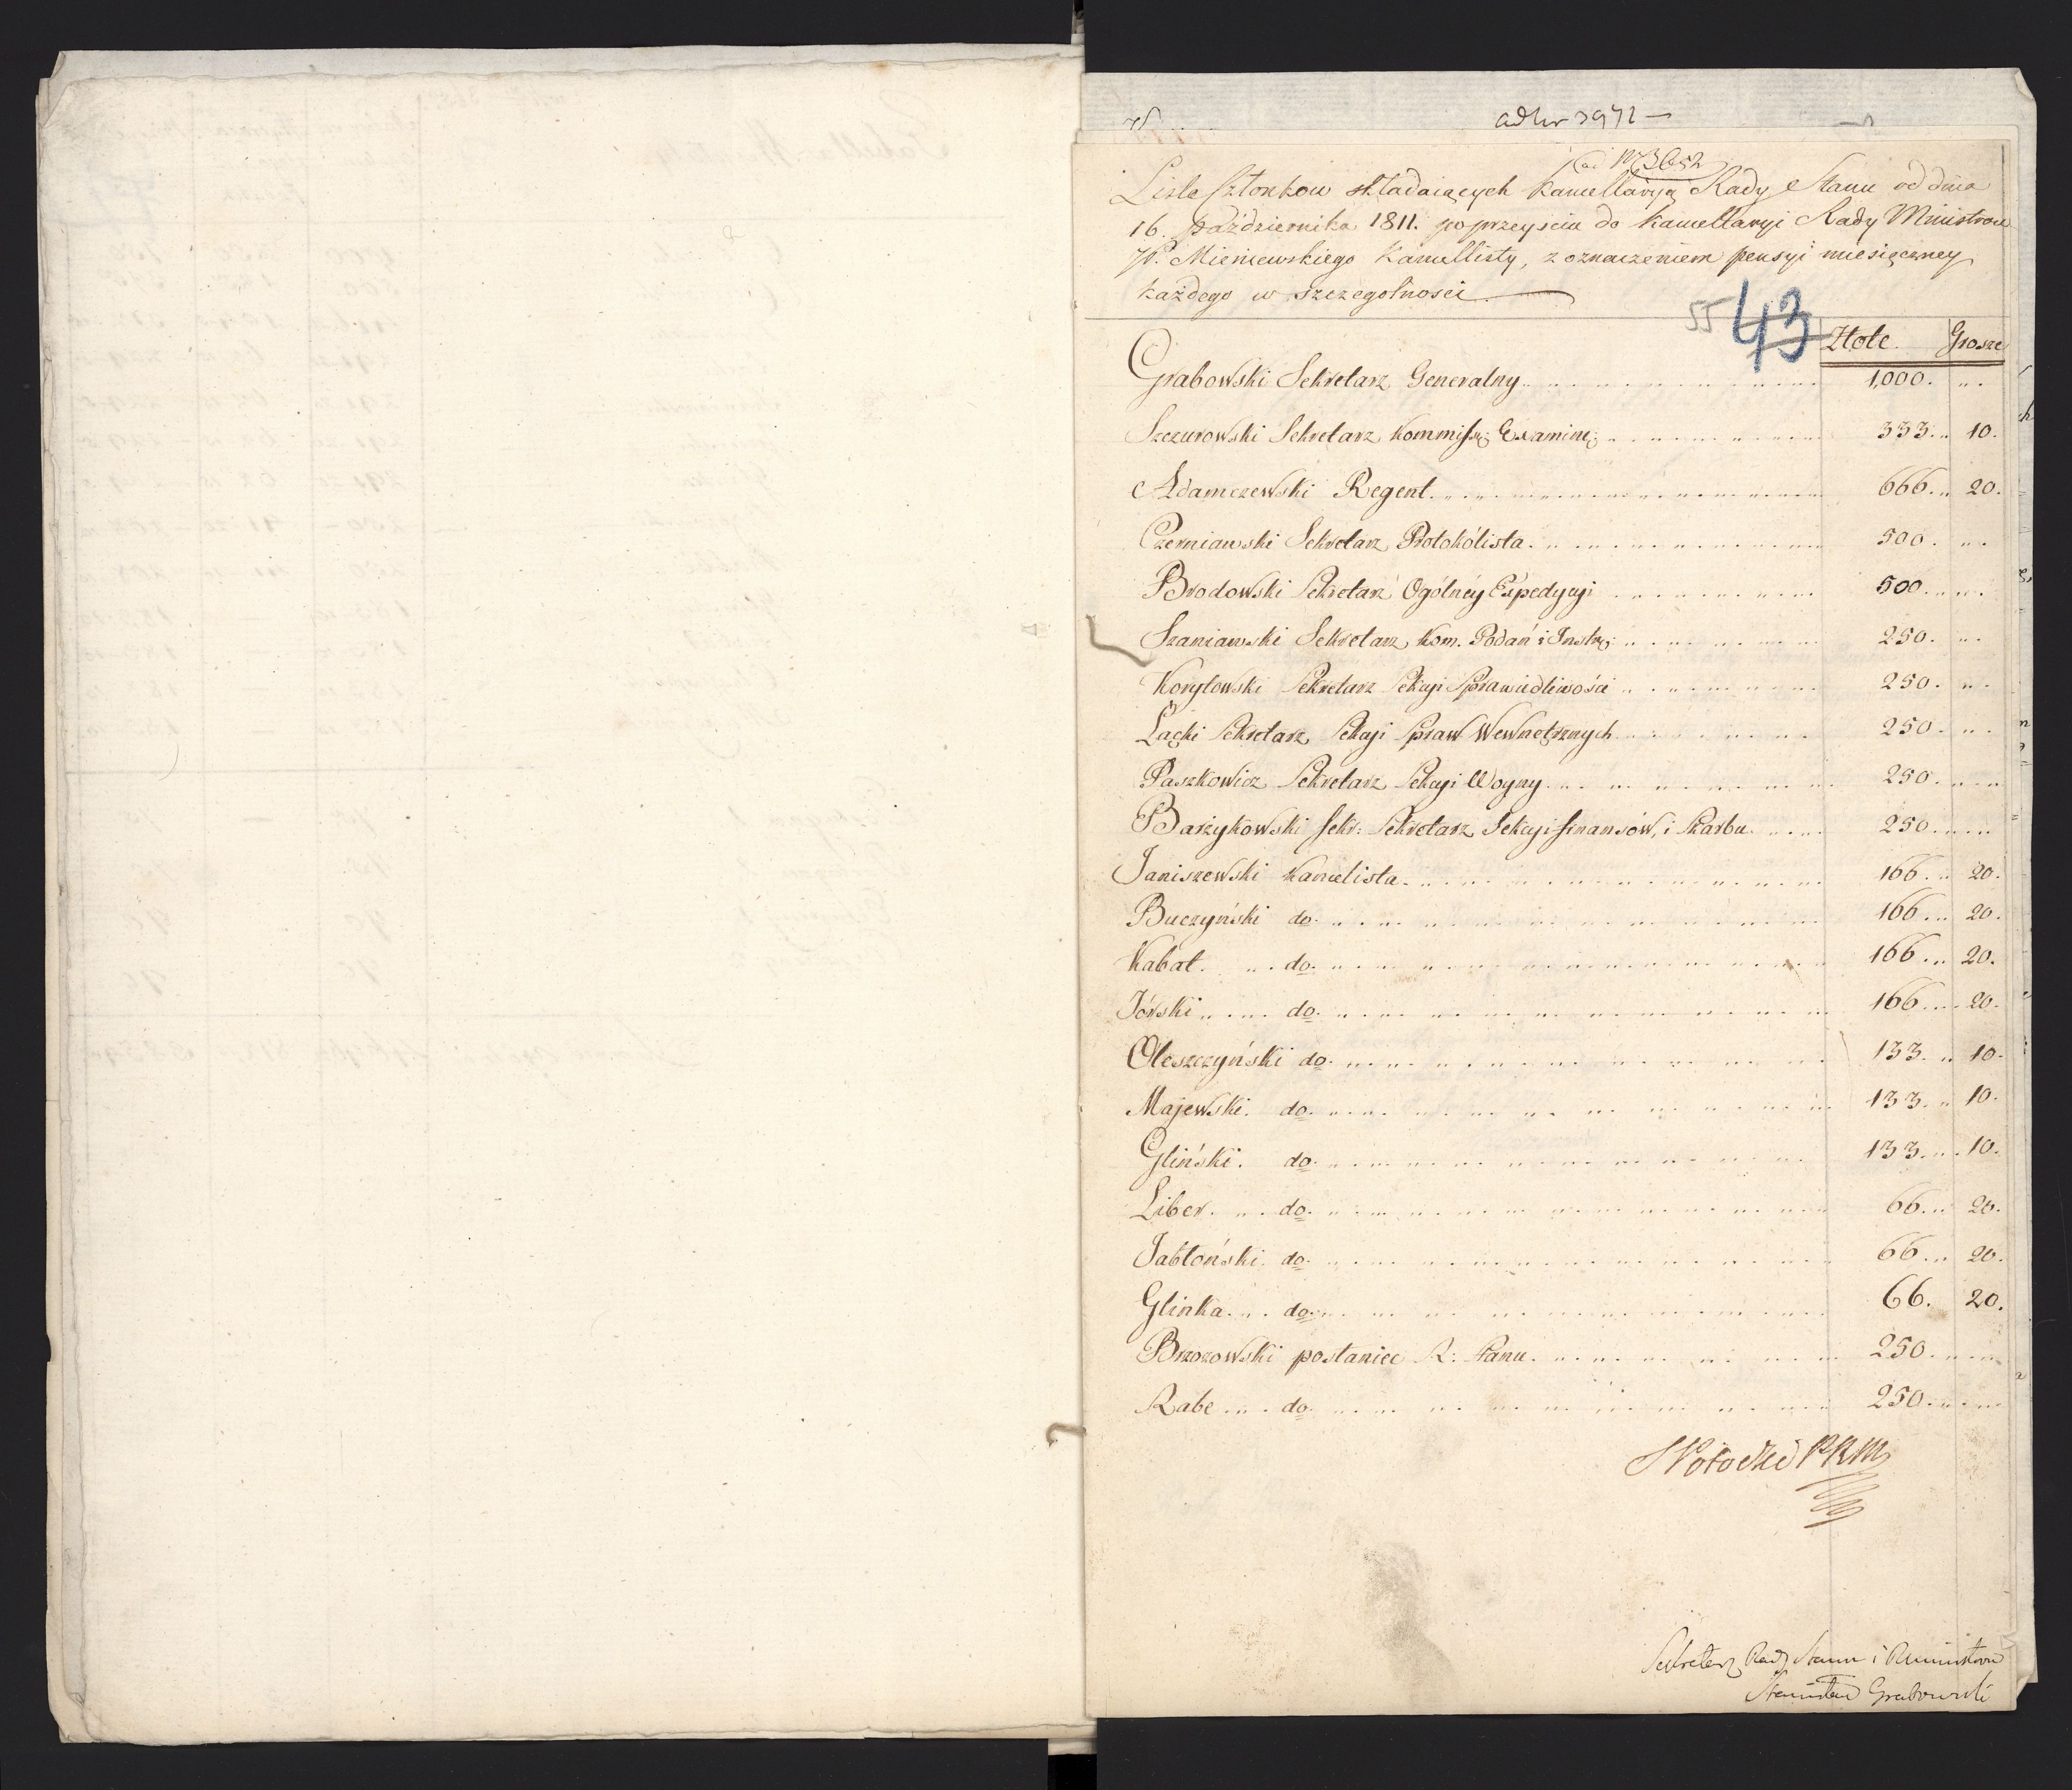 ad Nr 3971 —
ad Nr 3652
Liste Członkow składaiących Kancellaryą Rady Stanu od dnia
16. Października 1811. po przeyściu do Kancellaryi Rady Ministrow
JP. Mieniewskiego Kancellisty, z oznaczeniem pensyi miesięczney
każdego w szczegolnosci
55 43
Złote. Grosze
Grabowski Sekretarz Generalny 1,000. „.
Szczurowski Sekretarz Kommissyi Examine: 333. „ 10.
Adamczewski Regent 666. „ 20.
Czerniawski Sekretarz Protokólista 500. „.
Brodowski Sekretarz Ogólnéy Expedycyi 500. „.
Szaniawski Sekretarz Kom. Podań i Instr: 250. „.
Korytowski Sekretarz Sekcyi Sprawiedliwości 250. „.
Łącki Sekretarz Sekcyi Spraw Wewnętrznych 250. „.
Paszkowicz Sekretarz Sekcyi Woyny 250. „.
Barzykowski sekr: Sekretarz Sekcyi finansów, i Skarbu 250. „.
Janiszewski Kancelista 166. „ 20.
Buczyński do 166. „ 20.
Kabat do 166. „ 20.
Jórski do 166. „ 20.
Oleszczyński do 133. „ 10.
Majewski do 133. „ 10.
Gliński do 133. „ 10.
Liber do 66. „ 20.
Jabłoński do 66. „ 20.
Glinka do 66. 20.
Brzozowski posłaniec R: Stanu 250. „.
Rabe do 250. „.
S Potocki PRM
Sekretarz Rady Stanu i R Ministrow
Stanisław Grabowski